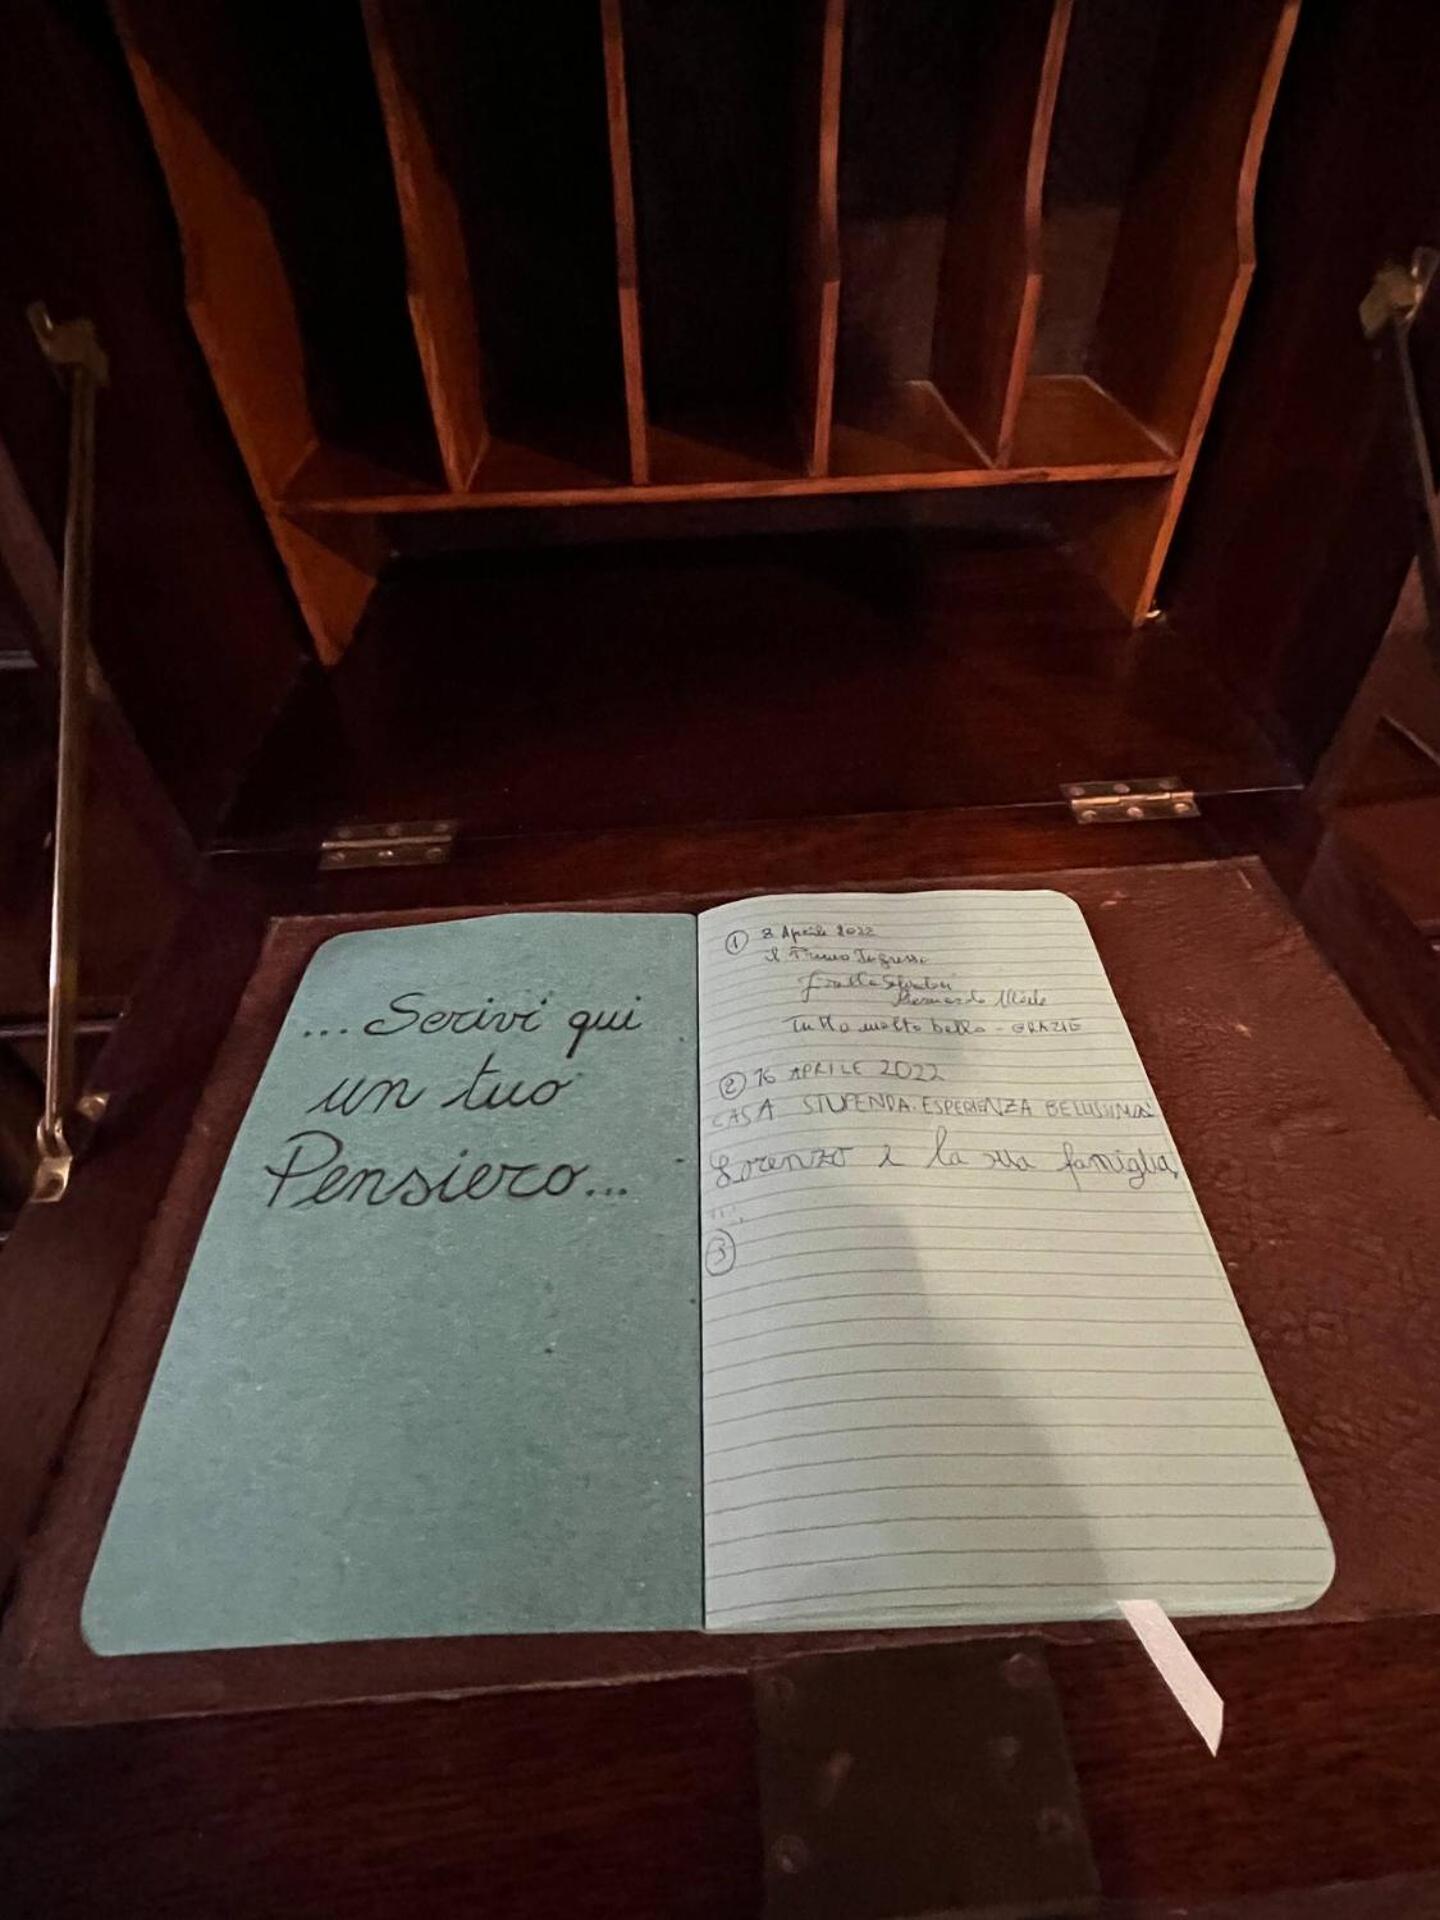 ... Scrivi qui
un tuo
Pensiero...
① 3 Aprile 2022
Primo Ingresso
Tutto molto bello - GRAZIE
② 16 APRILE 2022
CASA STUPENDA. ESPERIENZA BELLISSIMA
Lorenzo e la sua famiglia
③